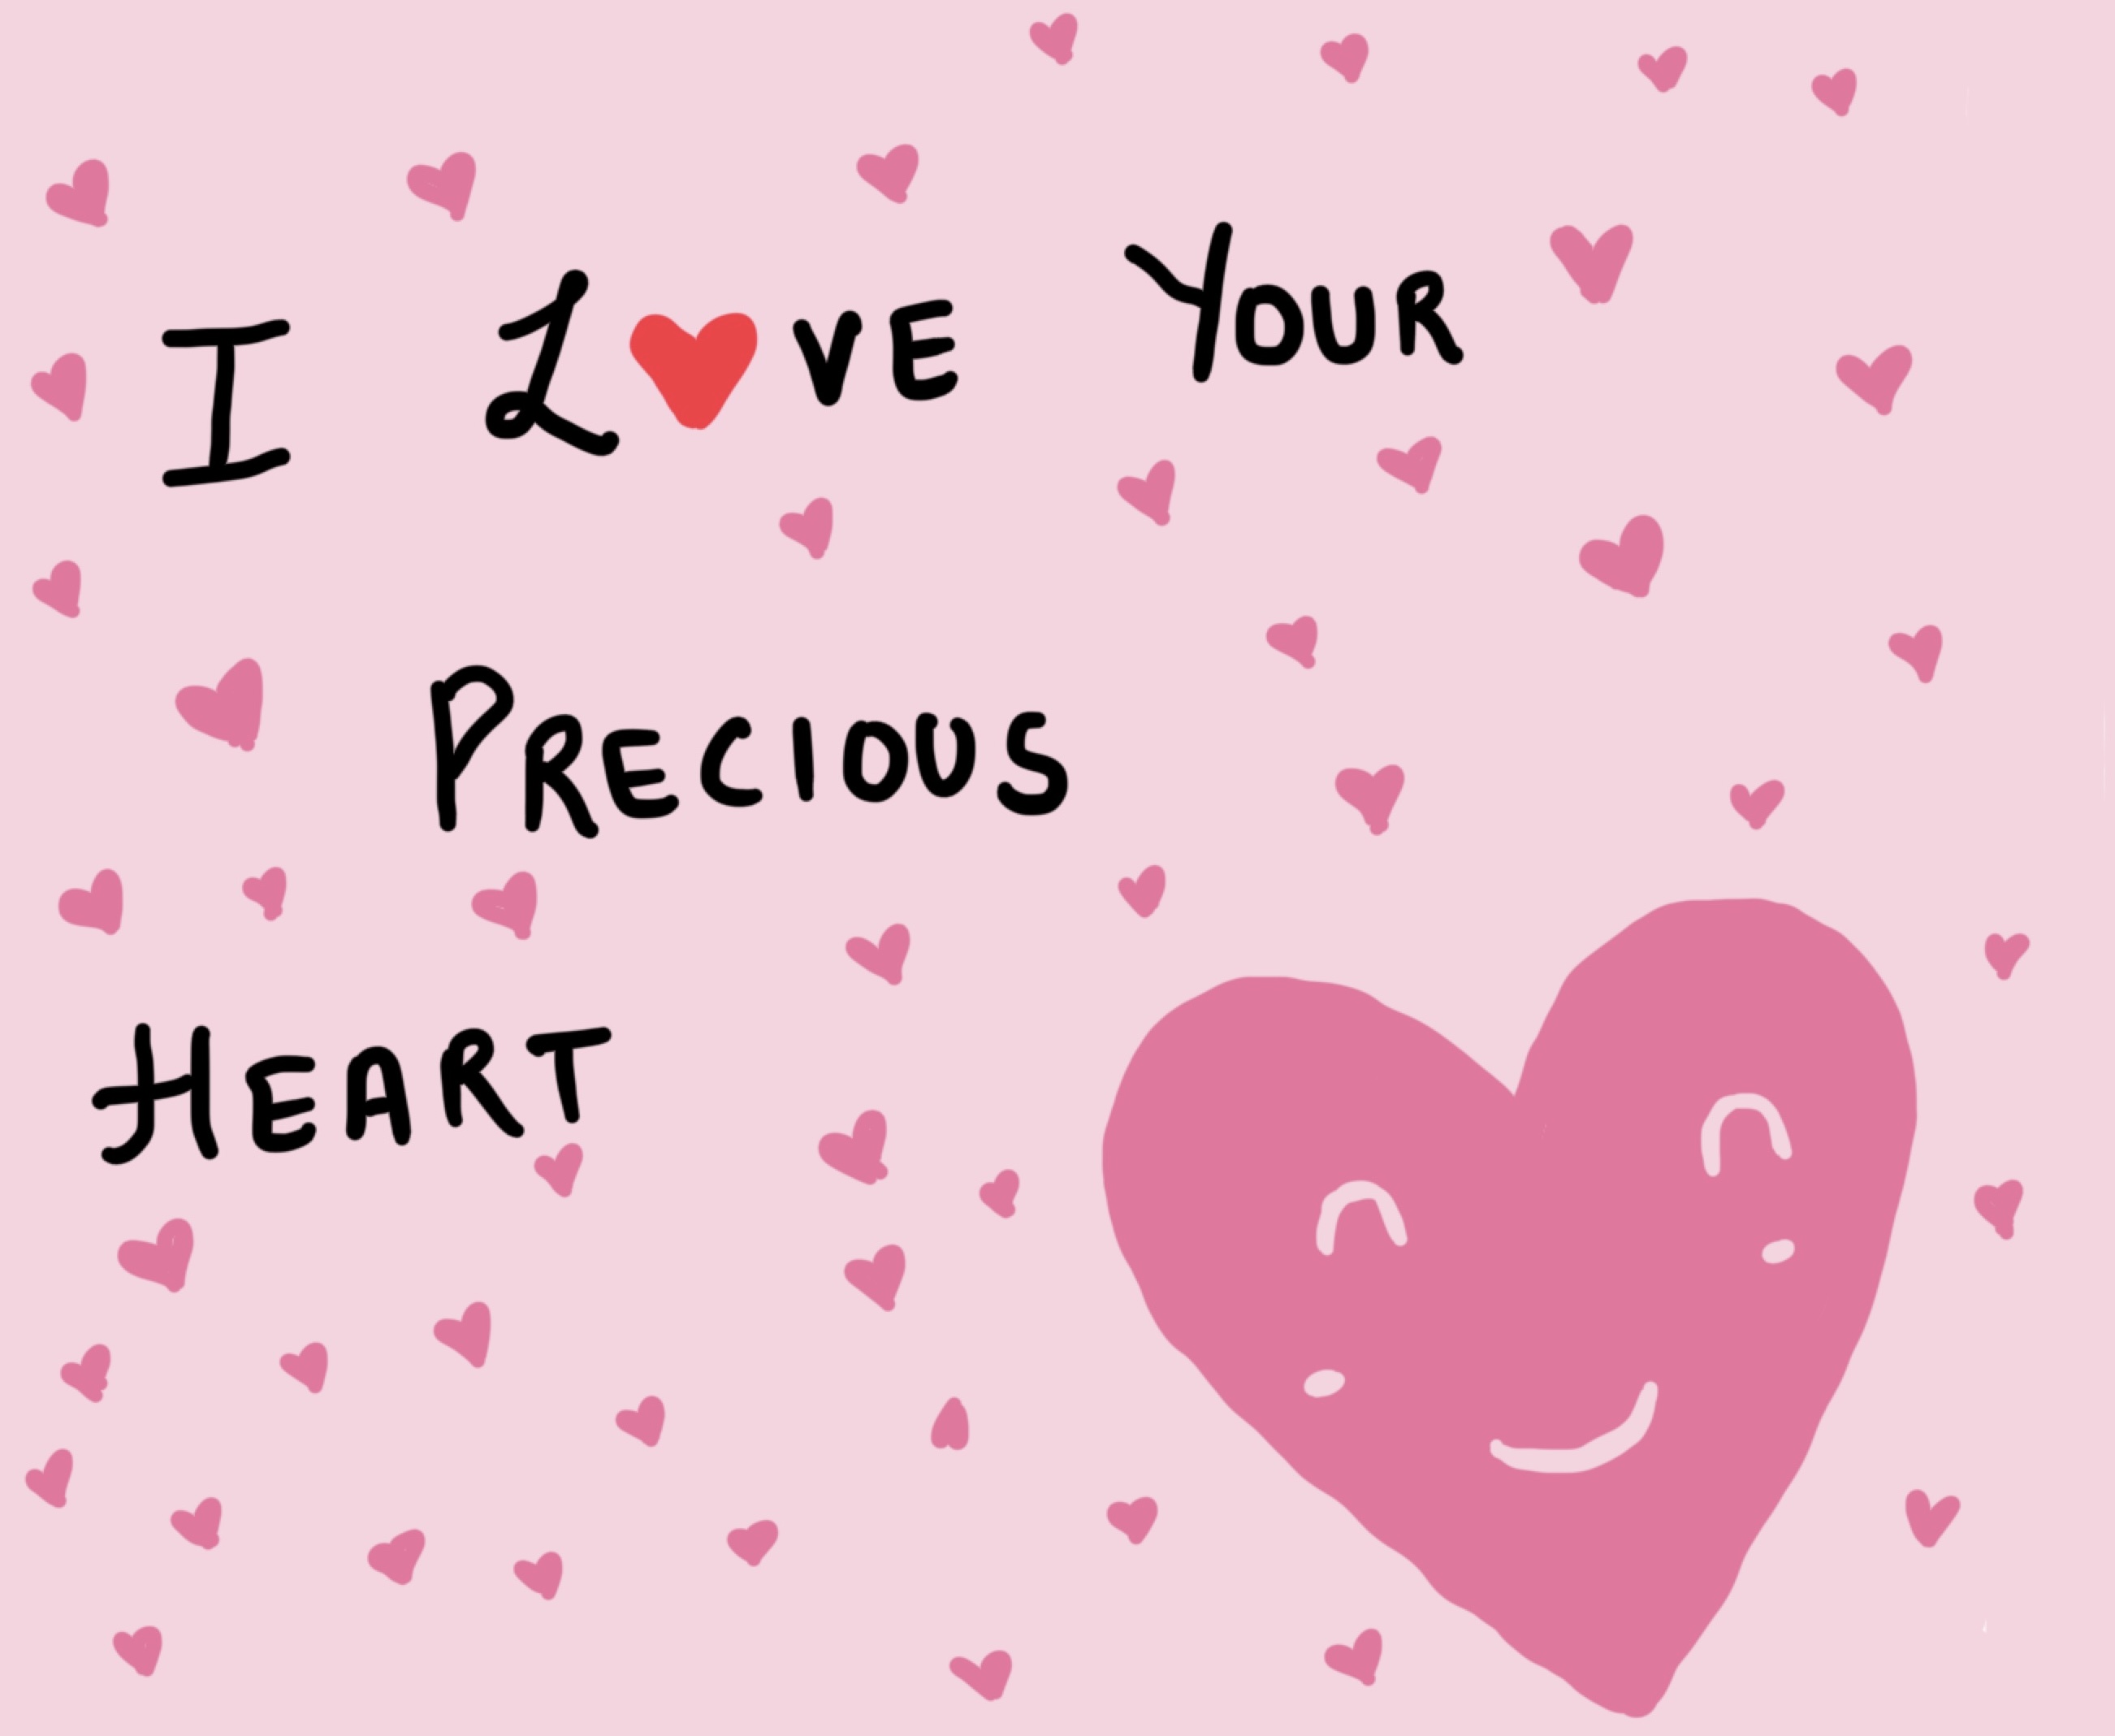 I L❤VE YOUR
PRECIOUS
HEART